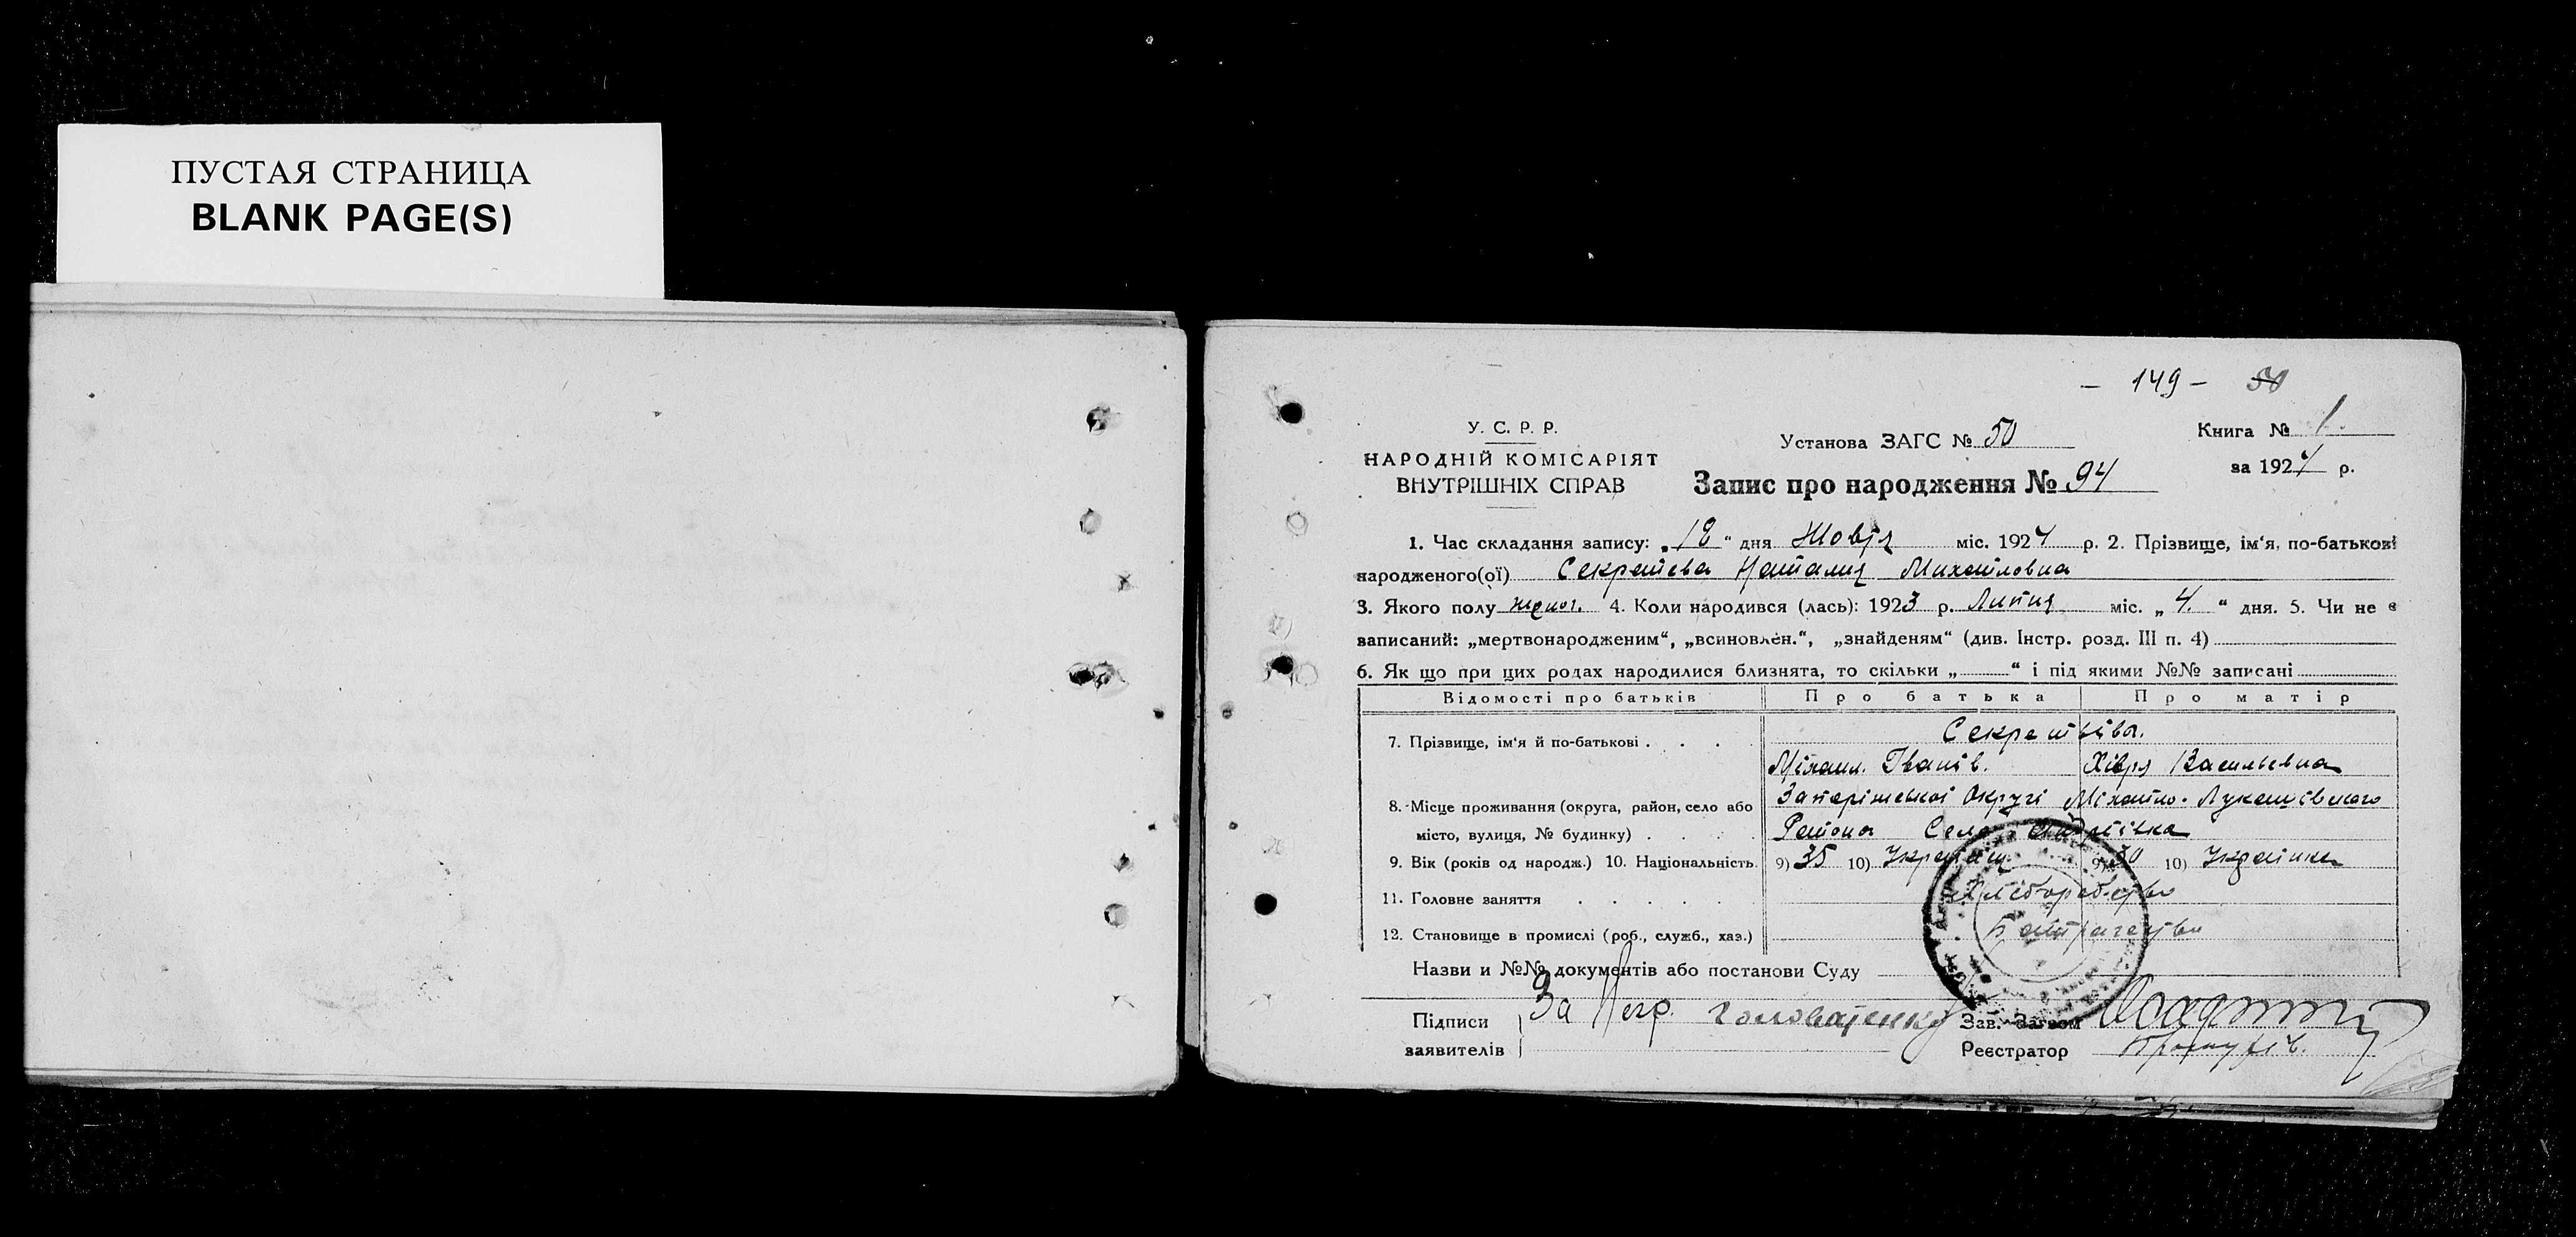 ПУСТАЯ СТРАНИЦА
BLANK PAGE(S)
— 149 — 50
У. С. Р. Р.
НАРОДНІЙ КОМІСАРІЯТ
ВНУТРІШНІХ СПРАВ
Установа ЗАГС № 50
Запис про народження № 94
Книга № 1.
за 1924 р.
1. Час складання запису: „18“ дня Жовтя міс. 1924 р. 2. Прізвище, ім‘я, по-батькові
народженого(ої) Секретева Наталия Михайловна
3. Якого полу жіноч. 4. Коли народився (лась): 1923 р. Липня міс. „4.“ дня. 5. Чи не є
записаний: „мертвонародженим“, „всиновлен.“, „знайденям“ (див. Інстр. розд. III п. 4)
6. Як що при цих родах народилися близнята, то скільки „ “ і під якими №№ записані
Відомості про батьків Про батька Про матір
7. Прізвище, ім‘я й по-батькові . . . Секретьіва.
Міхаил. Іванів. Хівря Васильевна
8. Місце проживання (округа, район, село або Запоріжської Округі Міхайло-Лукашівского
місто, вулиця, № будинку) . . . . Района Село
9. Вік (років од народж.) 10. Національність. 9) 35 10) Українц 9) 30 10) Українка
11. Головне заняття . . . . . Хлеборобство
12. Становище в промислі (роб., служб., хаз.)
Назви и №№ документів або постанови Суду
Підписи
заявителів
За Головатенко
Зав. Загсом
Реєстратор